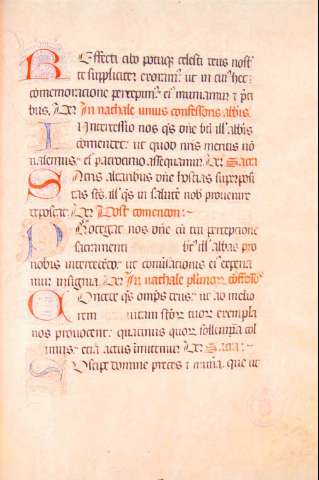 Refecti cibo potuque celesti deus nost
te supplicit exoram. ut in cui hec
comemoratione percepim. ei muniamur et p̄ci
bus. p̄ Dr̄. In natale unius confessoris abbis.
Intercessio nos qs dn̄e bt̄i ill abbis
comendet: ut quod nr̄is meritis nō
ualemus: ei patrocinio assequamur. p̄ Dr̄. Sacra
Sacris altaribus dn̄e hostias superposi
tas scs. ill qs in salutē nob prouenire
deposcat. p̄ Dr̄. Post comenion:~
Protegat nos dn̄e cū tui perceptione
sacramenti bt̄ ill abbas pro
nobis intercedēdo: ut conuersationis ei experia
mur insignia. p̄ Dr̄. In natale plimor confessor
Concede qs omps deus: ut ad melio
rem uitam scōr tuor exempla
nos prouocent: quatinus quor sollempnia col
imus: etiā actus imitemur. p̄ Dr̄. Sacra:~
Suscipe domine preces et mun̄a. que ut